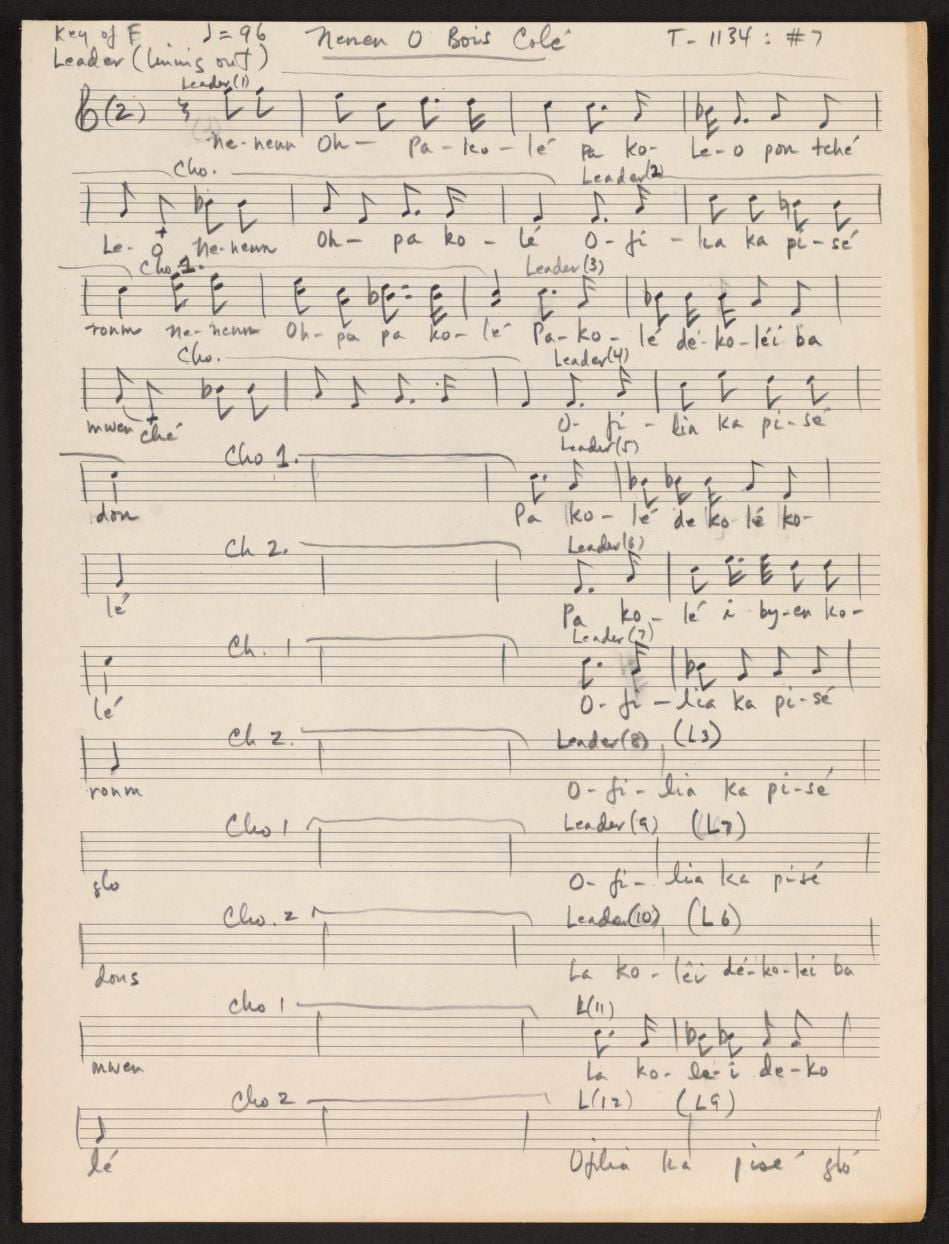 Key of F ♩= 96 Nenen O Bois Colé T- 1134 : #7
Leader (lining out)
Leader(1)
(2)
Ne-nenn Oh— Pa-ko-lé Pa ko- Le-o pon tché
Cho. Leader(2)
Le-o Ne-nenn Oh— pa ko-lé O-fi-lia ka pi-sé
Cho 1. Leader(3)
ronm ne-nenn Oh-pa pa ko-lé Pa-ko-lé dé-ko-léi ba
Cho. Leader(4)
mwen ché O-fi-lia ka pi-sé
Cho 1. Leader(5)
don Pa ko-lé de ko-lé ko-
Ch 2. Leader(6)
lé Pa ko-lé i by-en ko-
Ch. 1 Leader(7)
lé O-fi-lia ka pi-sé
Ch 2. Leader(8) (L3)
ronm O-fi-lia ka pi-sé
Cho 1 Leader(9) (L7)
glo O-fi-lia ka pi-sé
Cho. 2 Leader(10) (L6)
dons La ko-léi dé-ko-lei ba
Cho 1 L(11)
mwen La ko-le-i de-ko
Cho 2 L(12) (L9)
lé Ofilia ka pisé gló